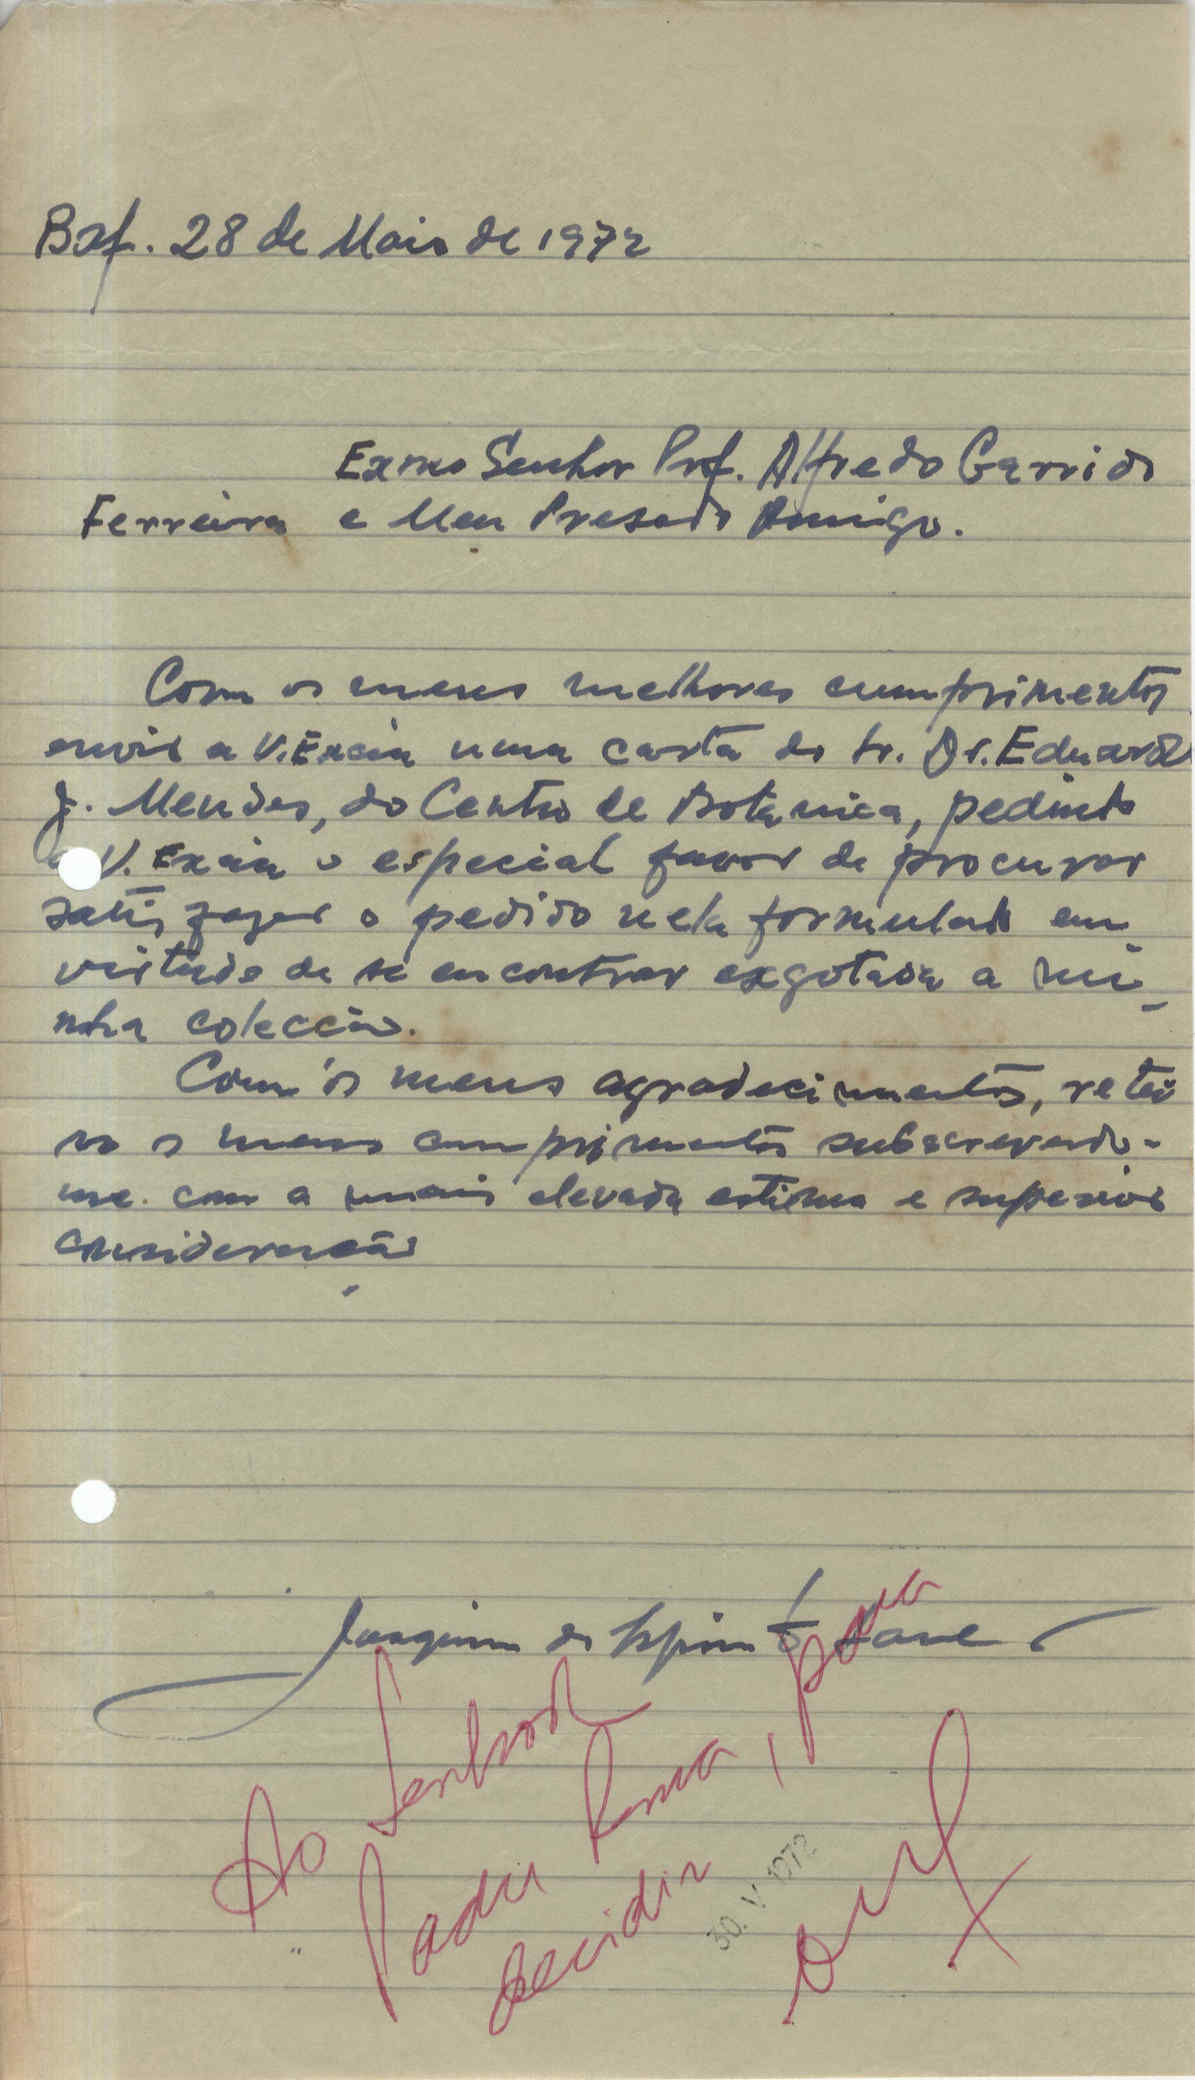 28 de Maio de 1972
Exmo Senhor Prof. Alfredo Garrido
Ferreira e Meu Presado Amigo.
Com os meus melhores cumprimentos
envio a V. Excia uma carta do Sr. Dr. Eduardo
J. Mendes, do Centro de Botanica, pedindo
a V. Excia o especial favor de procurar
satisfazer o pedido nela formulado em
virtude de se encontrar exgotada a mi-
nha colecção.
Com os meus agradecimentos, retei
ro os meus cumprimentos subscrevendo-
me com a mais elevada estima e superior
consideração
Joaquim do Espirito Santo
Ao Senhor
Padre Roma, para
decidir
30. V 1972